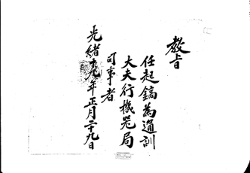 教旨
任起鎬為通訓
大夫行機器局
司事者
光緒十九年正月二十九日